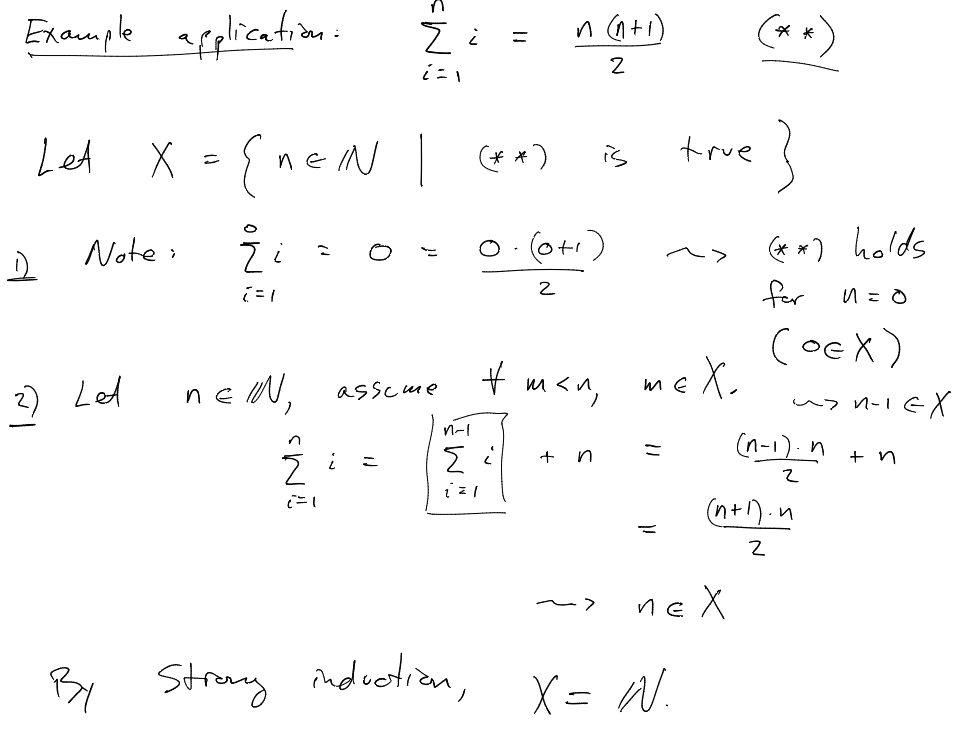 Example application: $\sum_{i=1}^{n} i = \frac{n(n+1)}{2}$ (**)
Let X = { n ∈ ℕ | (**) is true }
1) Note: $\sum_{i=1}^{0} i = 0 = \frac{0 \cdot (0+1)}{2}$ ⇝ (**) holds
for n = 0
(0 ∈ X)
2) Let n ∈ ℕ, assume ∀ m < n, m ∈ X.
⇝ n-1 ∈ X
$\sum_{i=1}^{n} i = \boxed{\sum_{i=1}^{n-1} i} + n = \frac{(n-1) \cdot n}{2} + n$
$= \frac{(n+1) \cdot n}{2}$
⇝ n ∈ X
By Strong induction, X = ℕ.